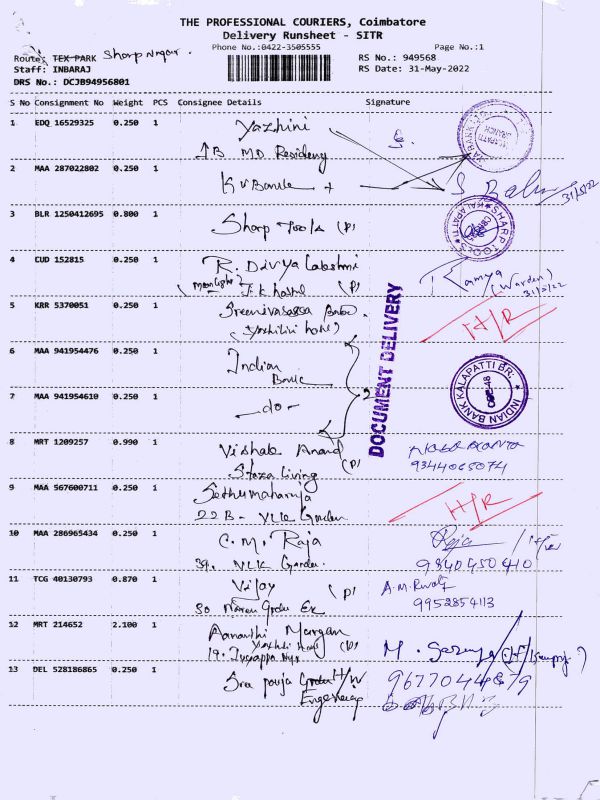 THE PROFESSIONAL COURIERS, Coimbatore
Delivery Runsheet - SITR
Phone No.:0422-3505555 Page No.:1
Route: TEX PARK Sharp Nagar. RS No.: 949568
Staff: INBARAJ RS Date: 31-May-2022
DRS No.: DCJB94956801
S No Consignment No Weight PCS Consignee Details Signature
1 EDQ 16529325 0.250 1 Yazhini
MD Residency
2 MAA 287022802 0.250 1 KV Bank
31/5/22
3 BLR 1250412695 0.800 1 Sharp Tools (P)
SHARP TOOLS KALAPATTI
4 CUD 152815 0.250 1 R. Divya Lakshmi
(Moonlight) J.K hostel (P) Ramya (Warden)
31/5/22
5 KRR 5370051 0.250 1 H/R
DOCUMENT DELIVERY
6 MAA 941954476 0.250 1 Indian
Bank
INDIAN BANK KALAPATTI BR:
7 MAA 941954610 0.250 1 -do- 2
8 MRT 1209257 0.990 1 Vishak Anand
Staza Living (P) 9344065074
9 MAA 567600711 0.250 1 Sethumaharaja H/R
22B- VLK Garden
10 MAA 286965434 0.250 1 C.M. Raja Raja
39. VLK Garden. 9840450410
11 TCG 40130793 0.870 1 Vijoy (P) A.M.
30 9952854113
12 MRT 214652 2.100 1 Murgan
19. (P) M.
13 DEL 528186865 0.250 1 Sra pooja